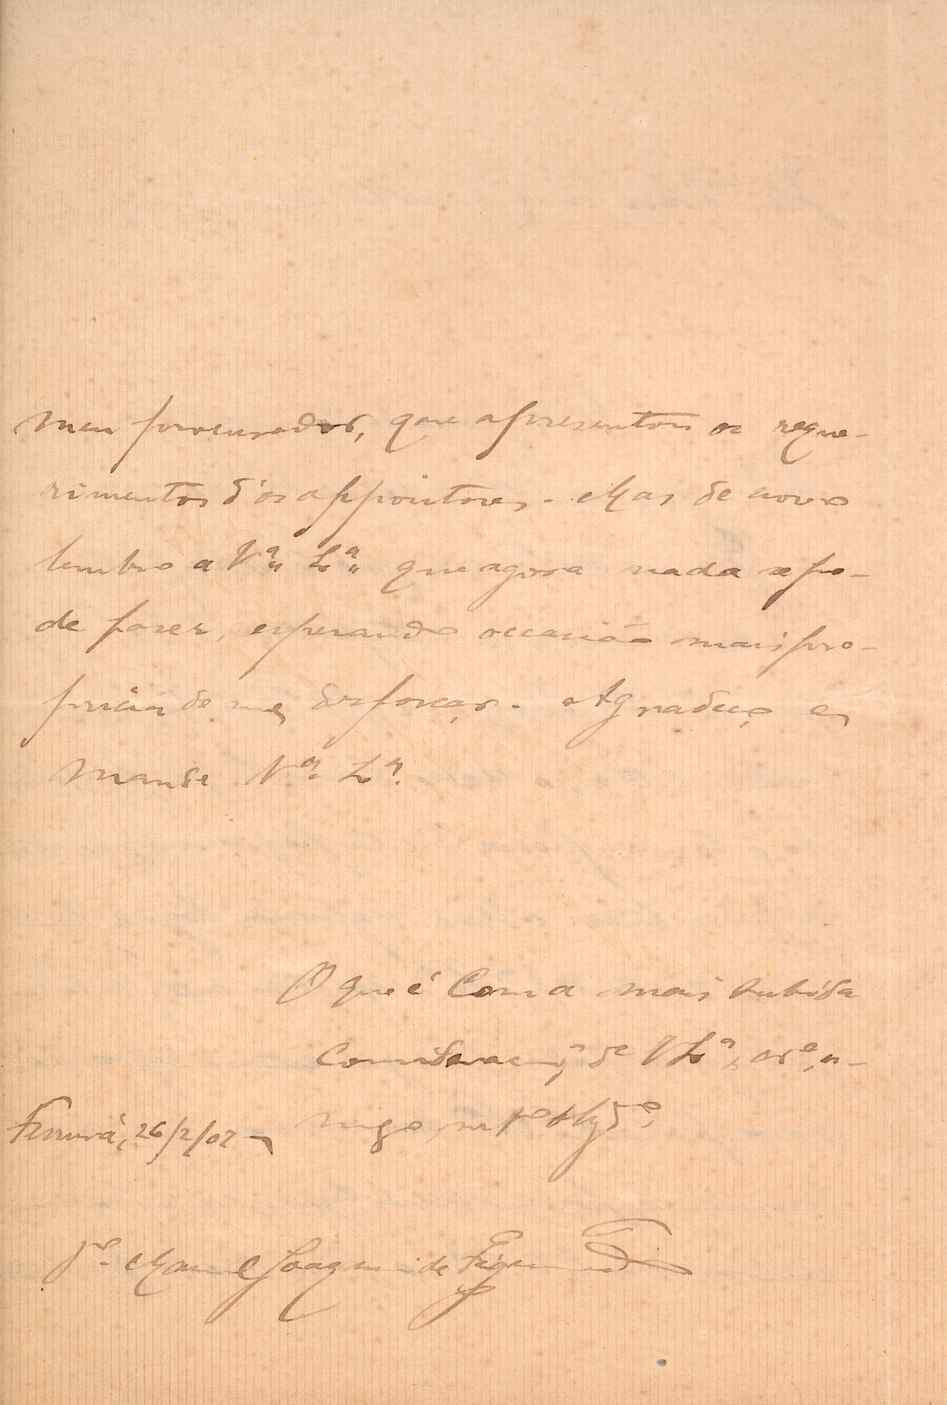 meu procurador, que apresentou os reque-
rimentos d'os appointores. Mas de novo
lembro a Vª Sª que agora nada se po-
de fazer, esperando occasião mais pro-
pricia de me desforçar. Agradeço e
mande Vª Sª.
O que é com a mais subida
consideração de V Sª, crº, a-
migo mtº obgdº.
26/2/02
Pe. Manoel Joaquim de